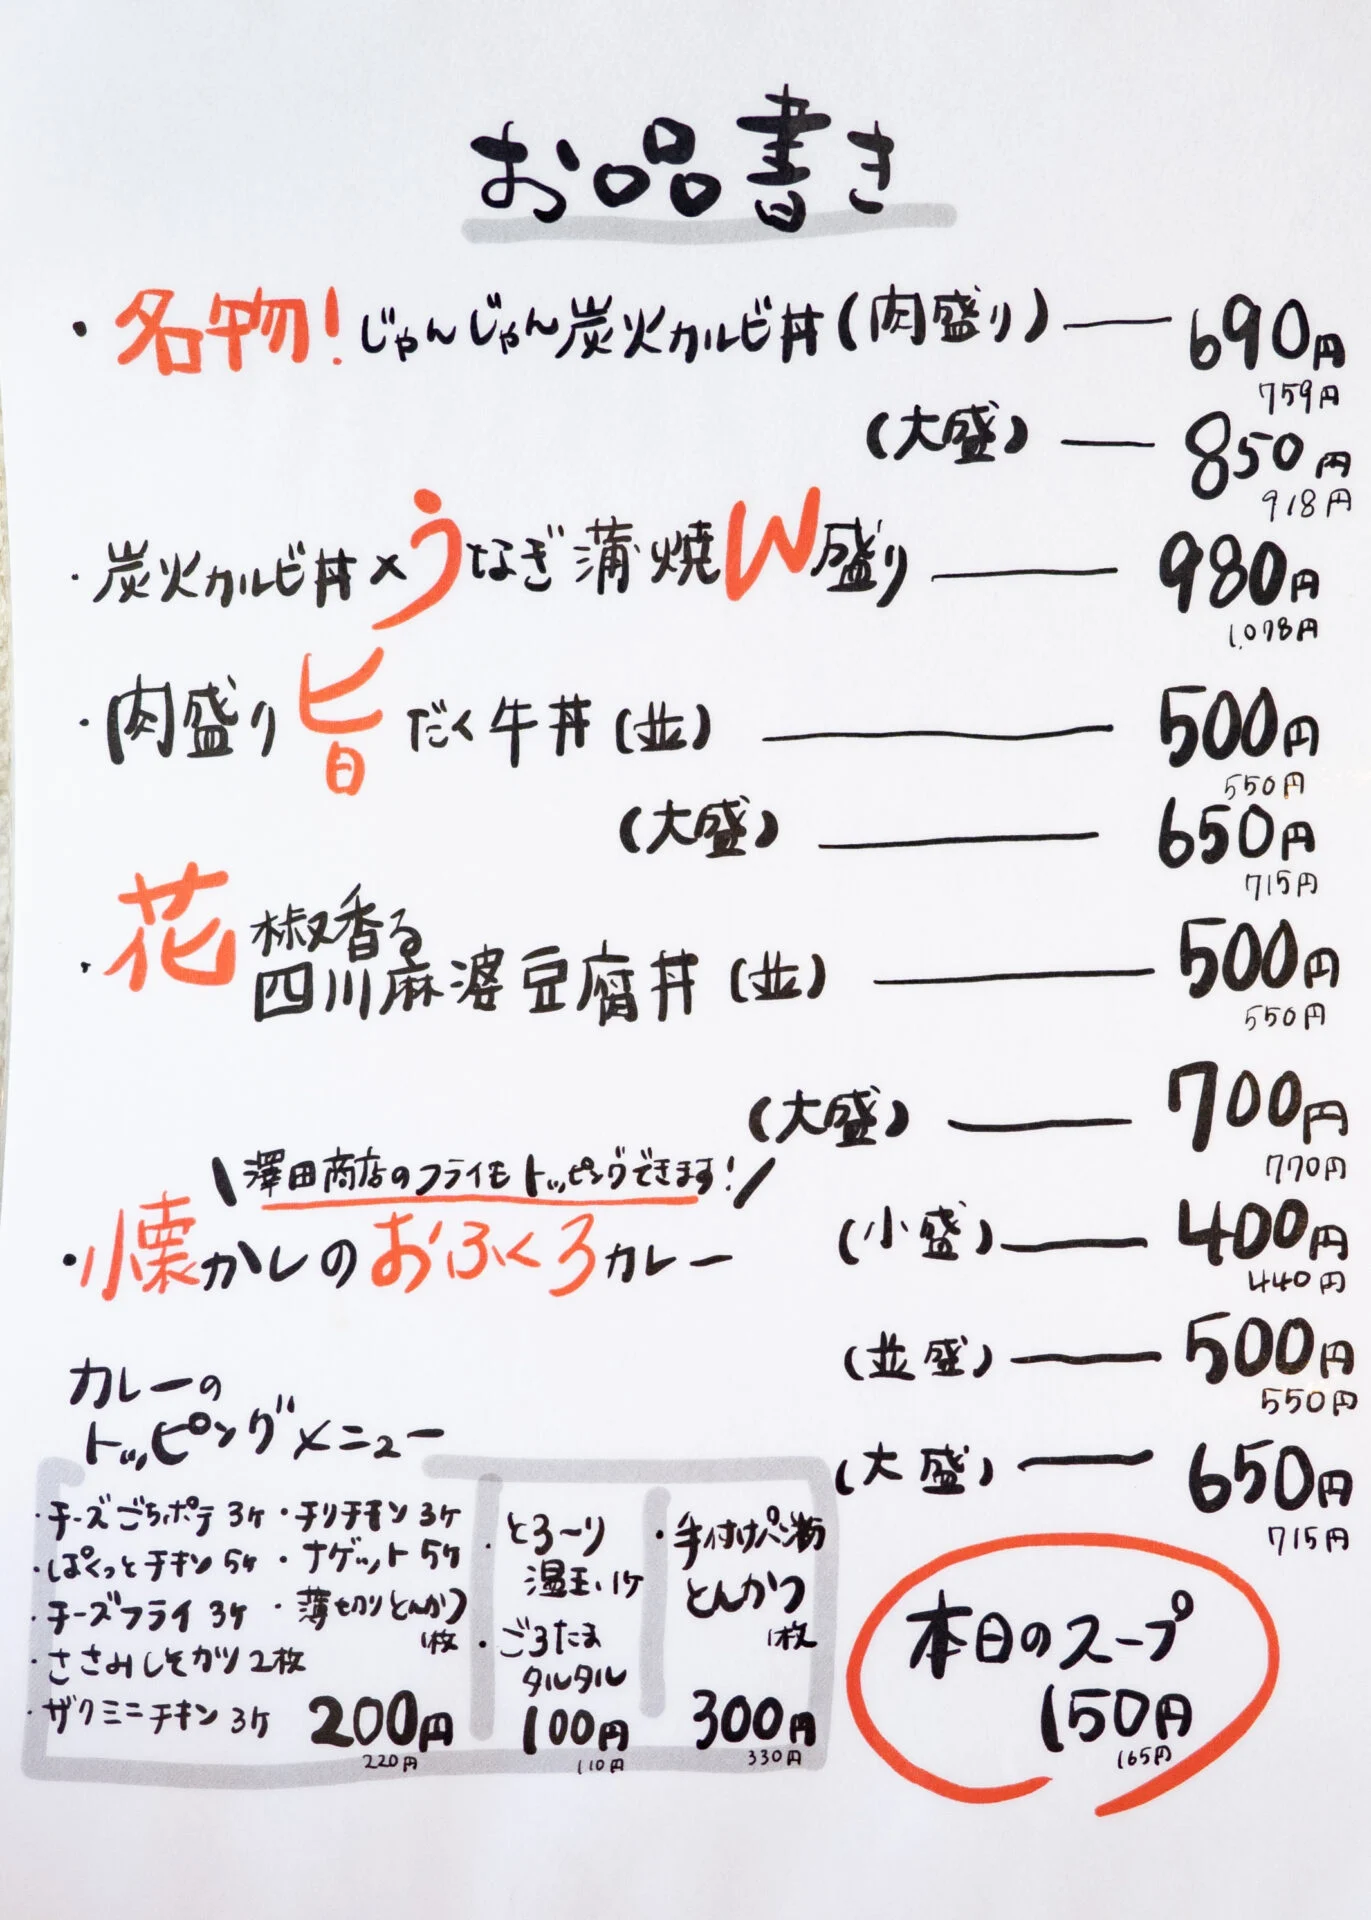 お品書き
・名物！じゃんじゃん炭火カルビ丼（肉盛り）— 690円
759円
（大盛）— 850円
918円
・炭火カルビ丼×うなぎ蒲焼W盛り — 980円
1,078円
・肉盛り旨だく牛丼（並）— 500円
550円
（大盛）— 650円
715円
・花椒香る
四川麻婆豆腐丼（並）— 500円
550円
（大盛）— 700円
770円
\澤田商店のフライもトッピングできます！/
・懐かしのおふくろカレー（小盛）— 400円
440円
（並盛）— 500円
550円
（大盛）— 650円
715円
カレーの
トッピングメニュー
・チーズごろポテ 3ヶ
・ぱくっとチキン 5ヶ
・チーズフライ 3ヶ
・ささみしそカツ 2枚
・ザクミニチキン 3ヶ
・チリチキン 3ヶ
・ナゲット 5ヶ
・薄切りとんかつ
1枚
200円
220円
・とろ〜り
温玉 1ヶ
・ごろたま
タルタル
100円
110円
・手付けパン粉
とんかつ
1枚
300円
330円
本日のスープ
150円
165円